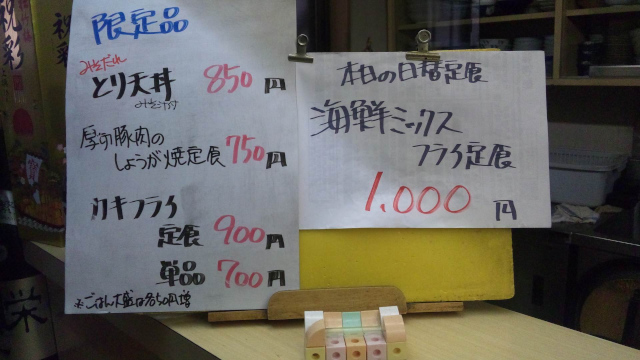 限定品
みそだれ
とり天丼 850円
みそ汁付
厚切豚肉の
しょうが焼定食 750円
カキフライ
定食 900円
単品 700円
※ごはん大盛は各50円増
本日の日替定食
海鮮ミックス
フライ定食
1,000円
祝彩
栄